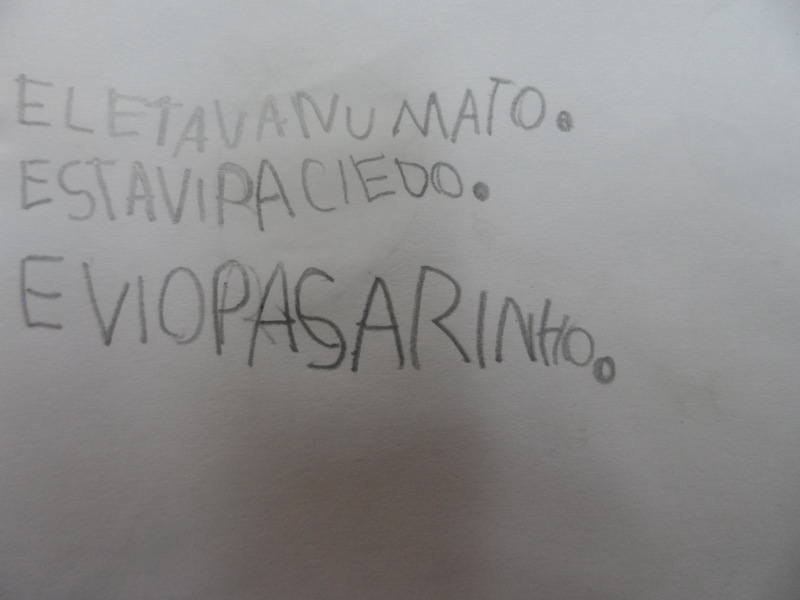 ELETAVANUMATO.
ESTAVIRACIEDO.
EVIOPASARINHO.